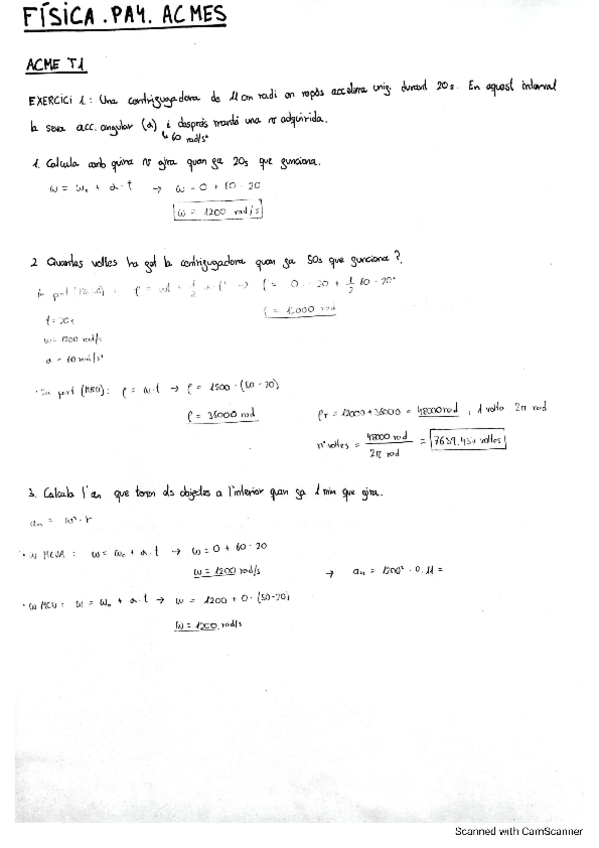 FÍSICA. PA4. ACMES
ACME T1
EXERCICI 1: Una centrifugadora de 11cm radi en repòs accelera unif. durant 20s. En aquest interval
la seva acc. angular (α) i després manté una v adquirida.
↳ 60 rad/s²
1. Calcula amb quina v gira quan fa 20s que funciona.
ω = ω₀ + α·t → ω = 0 + 60 · 20
ω = 1200 rad/s
2 Quantes voltes ha fet la centrifugadora quan fa 50s que funciona?
φ = ωt + 1/2 α·t² → φ = 0 · 20 + 1/2 60 · 20²
t = 20s
φ = 12000 rad
ω = 1200 rad/s
α = 60 rad/s²
· 2a part (MCU): φ = ω·t → φ = 1200 · (50 - 20)
φ = 36000 rad
φT = 12000 + 36000 = 48000 rad, 1 volta 2π rad
nº voltes = 48000 rad / 2π rad = 7639.43 voltes
3. Calcula l'an que tenen els objectes a l'interior quan fa 1 min que gira.
an = ω² · r
· ω MCUA: ω = ω₀ + α·t → ω = 0 + 60 · 20
ω = 1200 rad/s → an = 1200² · 0.11 =
· ω MCU: ω = ω₀ + α·t → ω = 1200 + 0 · (50-20)
ω = 1200 rad/s
Scanned with CamScanner